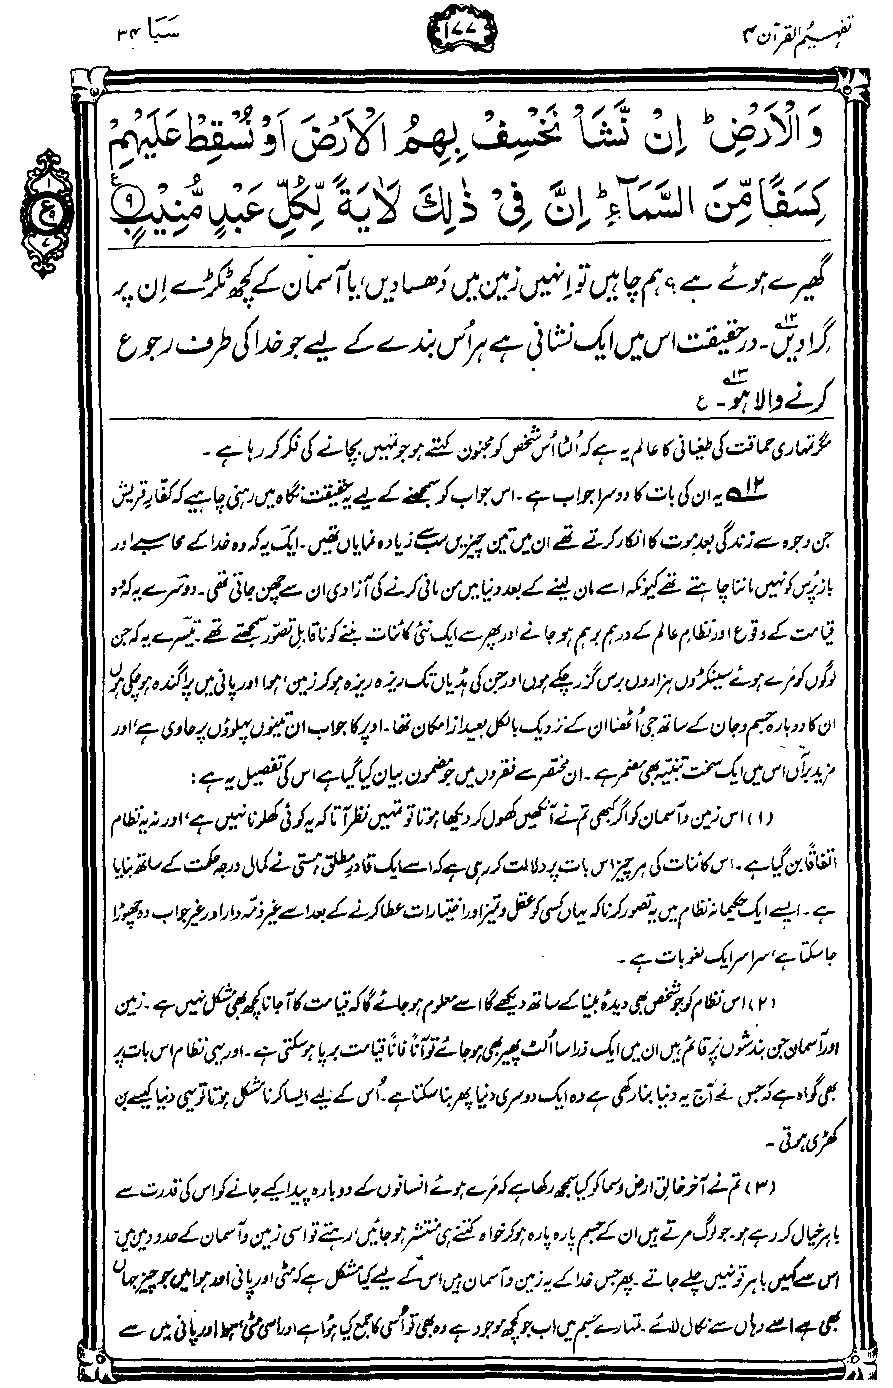 تفہیم القرآن ۴
۱۷۷
سَبَا ۳۴
وَالْاَرْضِ ؕ اِنْ نَّشَاْ نَخْسِفْ بِهِمُ الْاَرْضَ اَوْ نُسْقِطْ عَلَيْهِمْ
كِسَفًا مِّنَ السَّمَآءِ ؕ اِنَّ فِيْ ذٰلِكَ لَاٰيَةً لِّكُلِّ عَبْدٍ مُّنِيْبٍ ۹
ع
گھیرے ہوئے ہے؟ ہم چاہیں تو اِنہیں زمین میں دَھسا دیں، یا آسمان کے کچھ ٹکڑے اِن پر
گرا دیں۱۲۔ درحقیقت اس میں ایک نشانی ہے ہر اُس بندے کے لیے جو خدا کی طرف رجوع
کرنے والا ہو۱۳۔ ع
مگر تمہاری حماقت کی طغیانی کا عالم یہ ہے کہ اُلٹا اُس شخص کو مجنون کہتے ہو جو تمہیں بچانے کی فکر کر رہا ہے۔
۱۲ یہ ان کی بات کا دوسرا جواب ہے۔ اس جواب کو سمجھنے کے لیے یہ حقیقت نگاہ میں رہنی چاہیے کہ کفارِ قریش
جن وجوہ سے زندگی بعد موت کا انکار کرتے تھے ان میں تین چیزیں سب سے زیادہ نمایاں تھیں۔ ایک یہ کہ وہ خدا کے محاسبے اور
باز پُرس کو نہیں ماننا چاہتے تھے کیونکہ اسے مان لینے کے بعد دنیا میں من مانی کرنے کی آزادی ان سے چھن جاتی تھی۔ دوسرے یہ کہ وہ
قیامت کے وقوع اور نظامِ عالم کے درہم برہم ہو جانے اور پھر سے ایک نئی کائنات بننے کو ناقابلِ تصور سمجھتے تھے۔ تیسرے یہ کہ جن
لوگوں کو مَرے ہوئے سینکڑوں ہزاروں برس گزر چکے ہوں اور جن کی ہڈیاں تک ریزہ ریزہ ہو کر زمین، ہوا اور پانی میں پراگندہ ہو چکی ہوں
ان کا دوبارہ جسم و جان کے ساتھ جی اُٹھنا ان کے نزدیک بالکل بعید از امکان تھا۔ اوپر کا جواب ان تینوں پہلوؤں پر حاوی ہے، اور
مزید برآں اس میں ایک سخت تنبیہ بھی مضمر ہے۔ ان مختصر سے فقروں میں جو مضمون بیان کیا گیا ہے اس کی تفصیل یہ ہے:
(۱) اس زمین و آسمان کو اگر کبھی تم نے آنکھیں کھول کر دیکھا ہوتا تو تمہیں نظر آتا کہ یہ کوئی کھلونا نہیں ہے، اور نہ یہ نظام
اتفاقًا بن گیا ہے۔ اس کائنات کی ہر چیز اس بات پر دلالت کر رہی ہے کہ اسے ایک قادرِ مطلق ہستی نے کمال درجہ حکمت کے ساتھ بنایا
ہے۔ ایسے ایک حکیمانہ نظام میں یہ تصور کرنا کہ یہاں کسی کو عقل و تمیز اور اختیارات عطا کرنے کے بعد اسے غیر ذمہ دار اور غیر جواب دہ چھوڑا
جا سکتا ہے، سراسر ایک لغو بات ہے۔
(۲) اس نظام کو جو شخص بھی دیدۂ بینا کے ساتھ دیکھے گا اسے معلوم ہو جائے گا کہ قیامت کا آ جانا کچھ بھی مشکل نہیں ہے۔ زمین
اور آسمان جن بندشوں پر قائم ہیں ان میں ایک ذرا سا اُلٹ پھیر بھی ہو جائے تو آنًا فانًا قیامت برپا ہو سکتی ہے۔ اور یہی نظام اس بات پر
بھی گواہ ہے کہ جس نے آج یہ دنیا بنا رکھی ہے وہ ایک دوسری دنیا پھر بنا سکتا ہے۔ اُس کے لیے ایسا کرنا مشکل ہوتا تو یہی دنیا کیسے بن
کھڑی ہوتی۔
(۳) تم نے آخر خالقِ ارض و سما کو کیا سمجھ رکھا ہے کہ مَرے ہوئے انسانوں کے دوبارہ پیدا کیے جانے کو اس کی قدرت سے
باہر خیال کر رہے ہو۔ جو لوگ مرتے ہیں ان کے جسم پارہ پارہ ہو کر خواہ کتنے ہی منتشر ہو جائیں، رہتے تو اسی زمین و آسمان کے حدود میں ہیں
اس سے کہیں باہر تو نہیں چلے جاتے۔ پھر جس خدا کے یہ زمین و آسمان ہیں اس کے لیے کیا مشکل ہے کہ مٹی اور پانی اور ہوا میں جو چیز جہاں
بھی ہے اسے وہاں سے نکال لائے۔ تمہارے جسم میں اب جو کچھ موجود ہے وہ بھی تو اُسی کا جمع کیا ہوا ہے اور اسی مٹی، ہوا اور پانی میں سے